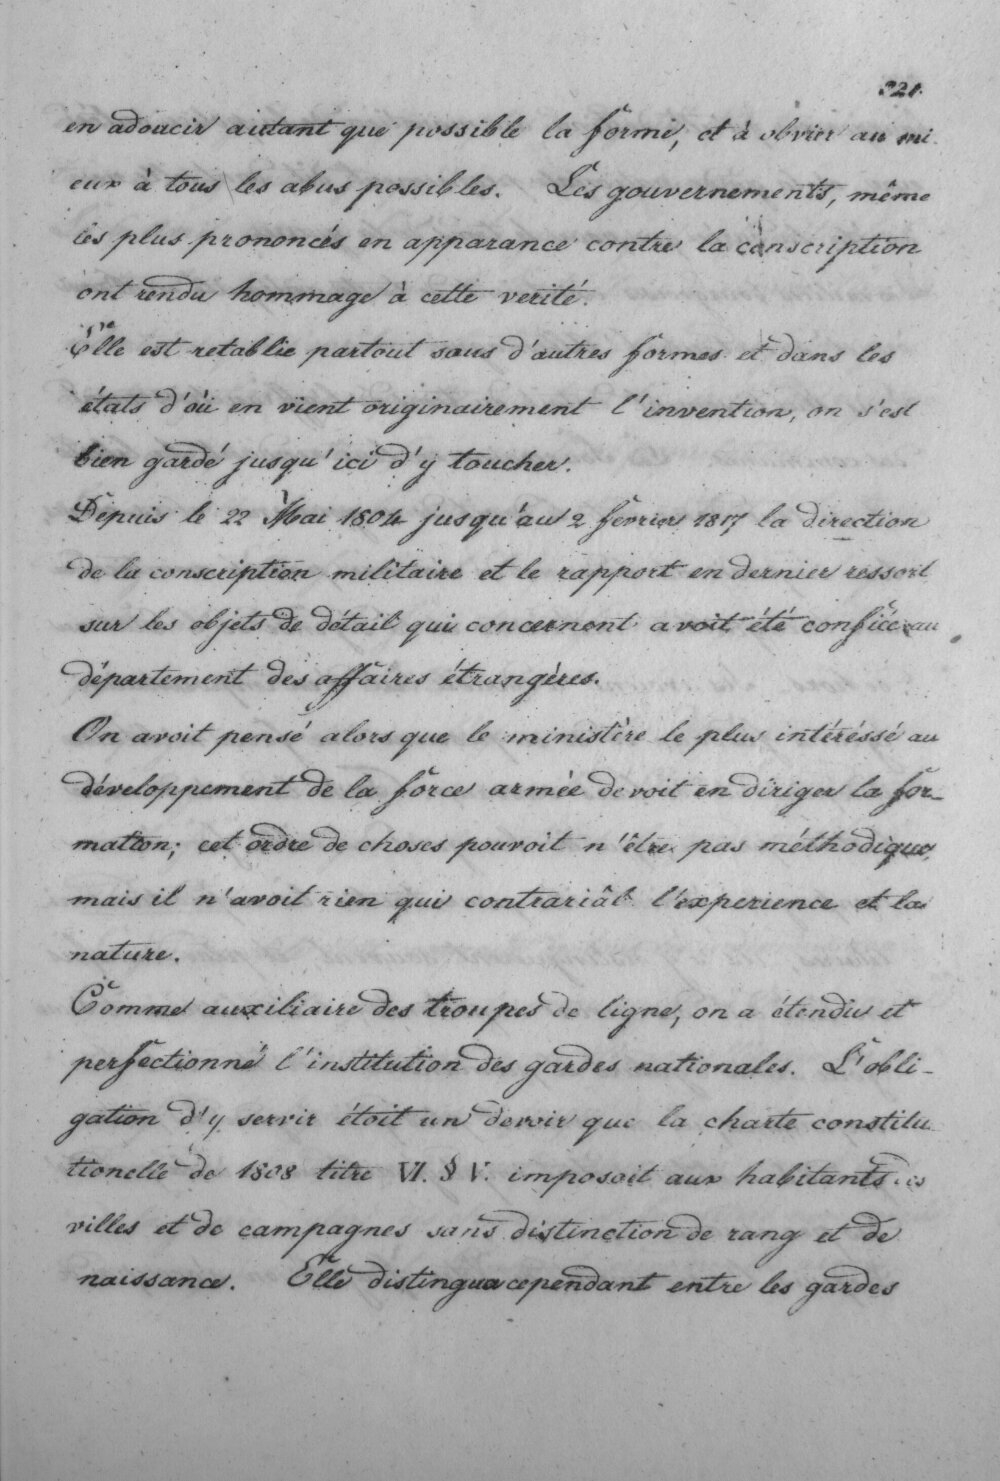 321.
en adoucir autant que possible la forme, et à obvier au mi
eux à tous les abus possibles. Les gouvernements, même
les plus prononcés en apparance contre la conscription
ont rendu hommage à cette verité.
Elle est retablie partout sous d'autres formes et dans les
états d'où en vient originairement l'invention, on s'est
bien gardé jusqu'ici d'y toucher.
Depuis le 22 Mai 1804 jusqu'au 2 fevrier 1817 la direction
de la conscription militaire et le rapport en dernier ressort
sur les objets de détail qui concernent avoit été confiée au
département des affaires étrangères.
On avoit pensé alors que le ministère le plus intéréssé au
développement de la force armée devoit en diriger la for-
mation; cet ordre de choses pouvoit n'être pas méthodique,
mais il n'avoit rien qui contrariât l'experience et la
nature.
Comme auxiliaire des troupes de ligne, on a étendu et
perfectionné l'institution des gardes nationales. L'obli-
gation d'y servir étoit un devoir que la charte constitu
tionelle de 1808 titre VI. § V. imposoit aux habitants des
villes et de campagnes sans distinction de rang et de
naissance. Elle distingua cependant entre les gardes